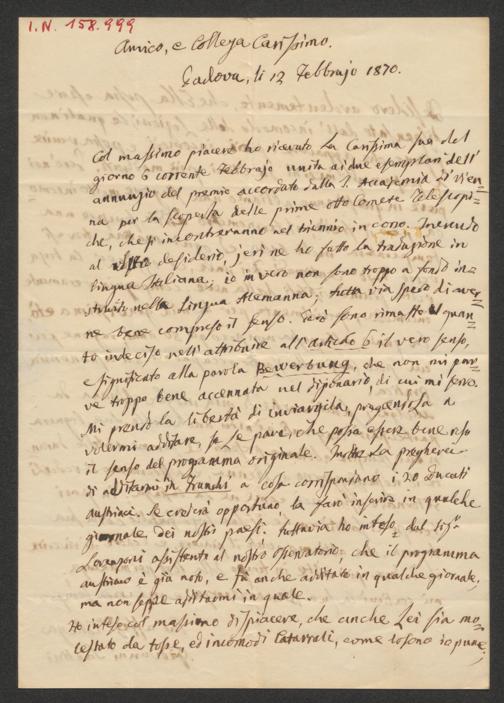 I.N. 158.999
Amico, e Collega Carissimo.
Padova, li 12 Febbrajo 1870.
Col massimo piacere ho ricevuto la Carissima sua del
giorno 6 corrente Febbrajo unita ai due esemplari dell'
annunzio del premio accordato dalla I. Accademia di Vien=
na per la scoperta delle prime otto Comete Telescopi=
che, che si incontreranno nel triennio in corso. Inerendo
al desiderio, jeri ne ho fatto la traduzione in
lingua Italiana; io in vero non sono troppo a fondo in=
struito nella Lingua Alemanna; tutta via spero di aver=
ne bene compreso il senso. Però sono rimasto al quan=
to indeciso nell'attribuire all'articolo 6 il vero senso,
e significato alla parola Bewerbung, che non mi par=
ve troppo bene accennata nel dizionario, di cui mi servo.
Mi prendo la libertà di inviargliela, pregandola a
volermi additare, se Le pare, che possa essere bene reso
il senso del programma originale. Inoltre La pregherei
di additarmi in Franchi a cosa corrispondano i 20 Ducati
austriaci. Se crederà opportuno, la farò inserire in qualche
giornale dei nostri paesi. tuttavia ho inteso dal Sigr
Lorenzoni assistente al nostro osservatorio, che il programma
austriaco è già noto, e fu anche additato in qualche giornale,
ma non seppe additarmi in quale.
Ho inteso col massimo dispiacere, che anche Lei sia mo=
lestato da tosse, ed incomodi Catarrali, come lo sono io pure;